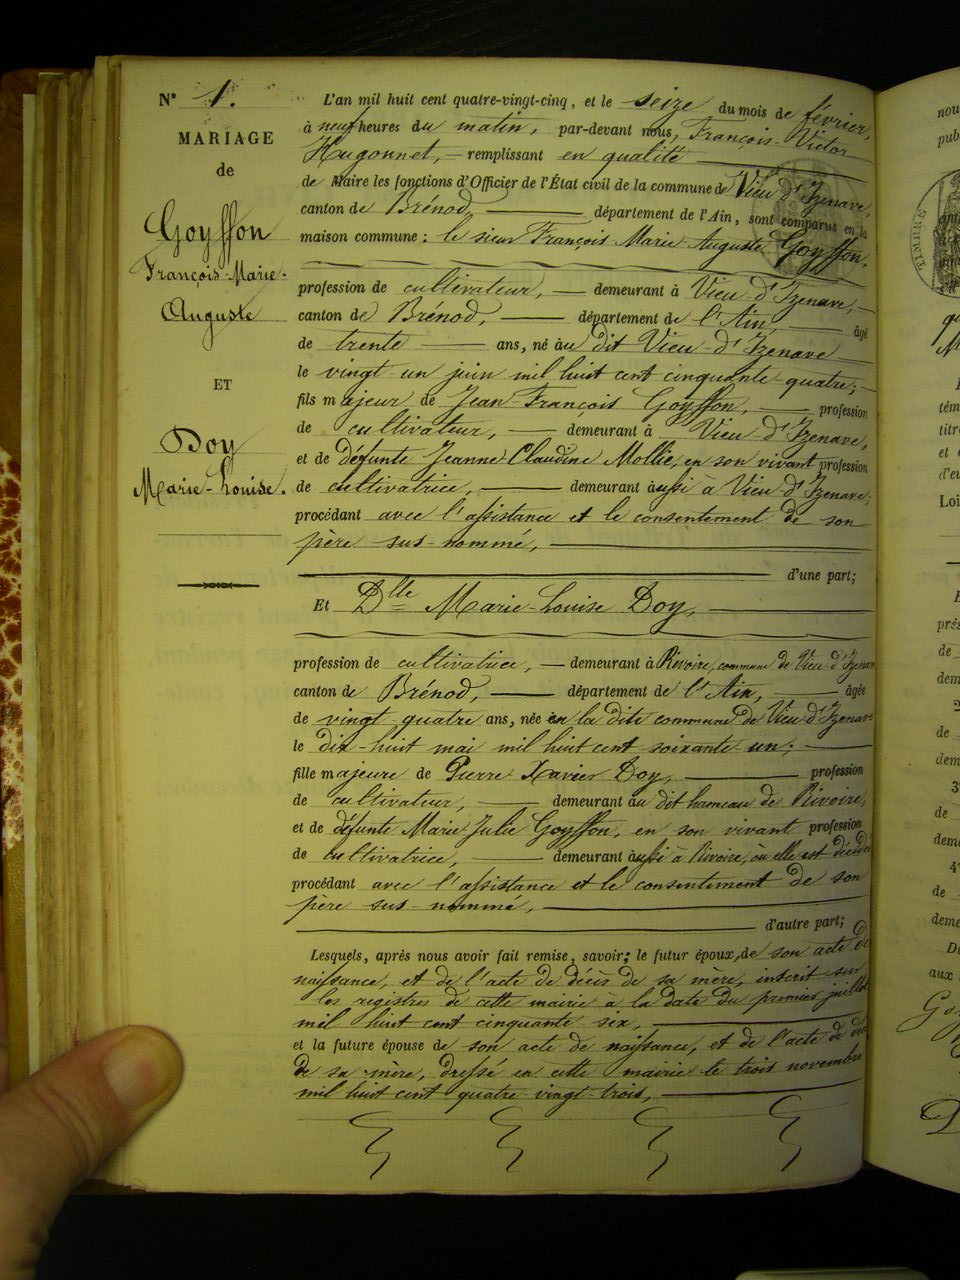 N° 1.
MARIAGE
de
Goyffon
François-Marie-
Auguste
ET
Doy
Marie-Louise.
L'an mil huit cent quatre-vingt-cinq, et le seize du mois de février,
à neuf heures du matin, par-devant nous, François-Victor
Hugonnet, remplissant en qualité
de Maire les fonctions d'Officier de l'État civil de la commune de Vieu-d'Izenave,
canton de Brénod, département de l'Ain, sont comparus en la
maison commune : le sieur François Marie Auguste Goyffon,
profession de cultivateur, demeurant à Vieu-d'Izenave,
canton de Brénod, département de l'Ain, âgé
de trente ans, né au dit Vieu-d'Izenave
le vingt-un juin mil huit cent cinquante-quatre;
fils majeur de Jean-François Goyffon, profession
de cultivateur, demeurant à Vieu-d'Izenave,
et de défunte Jeanne Claudine Mollie, en son vivant profession
de cultivatrice, demeurant aussi à Vieu-d'Izenave,
procédant avec l'assistance et le consentement de son
père sus-nommé,
d'une part;
Et Dlle Marie-Louise Doy,
profession de cultivatrice, demeurant à Rivoire, commune de Vieu-d'Izenave
canton de Brénod, département de l'Ain, âgée
de vingt-quatre ans, née en la dite commune de Vieu-d'Izenave
le dix-huit mai mil huit cent soixante-un;
fille majeure de Pierre Xavier Doy, profession
de cultivateur, demeurant au dit hameau de Rivoire,
et de défunte Marie Julie Goyffon, en son vivant profession
de cultivatrice, demeurant aussi à Rivoire, où elle est décédée
procédant avec l'assistance et le consentement de son
père sus-nommé,
d'autre part;
Lesquels, après nous avoir fait remise, savoir; le futur époux, de son acte de
naissance, et de l'acte de décès de sa mère, inscrit sur
les registres de cette mairie à la date du premier juillet
mil huit cent cinquante-six,
et la future épouse de son acte de naissance, et de l'acte de décès
de sa mère, dressé en cette mairie le trois novembre
mil huit cent quatre-vingt-trois,
TIMBRE